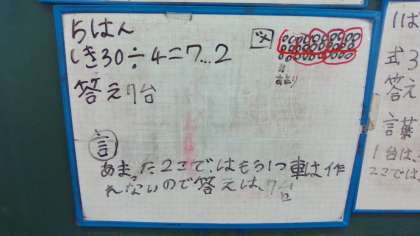 5はん
しき30÷4=7…2
答え7台
図
あまり
言
あまった2こで、はもう1つ車は作
れないので答えは、7台
11は
式3
答え
言葉
1台は
2こでは